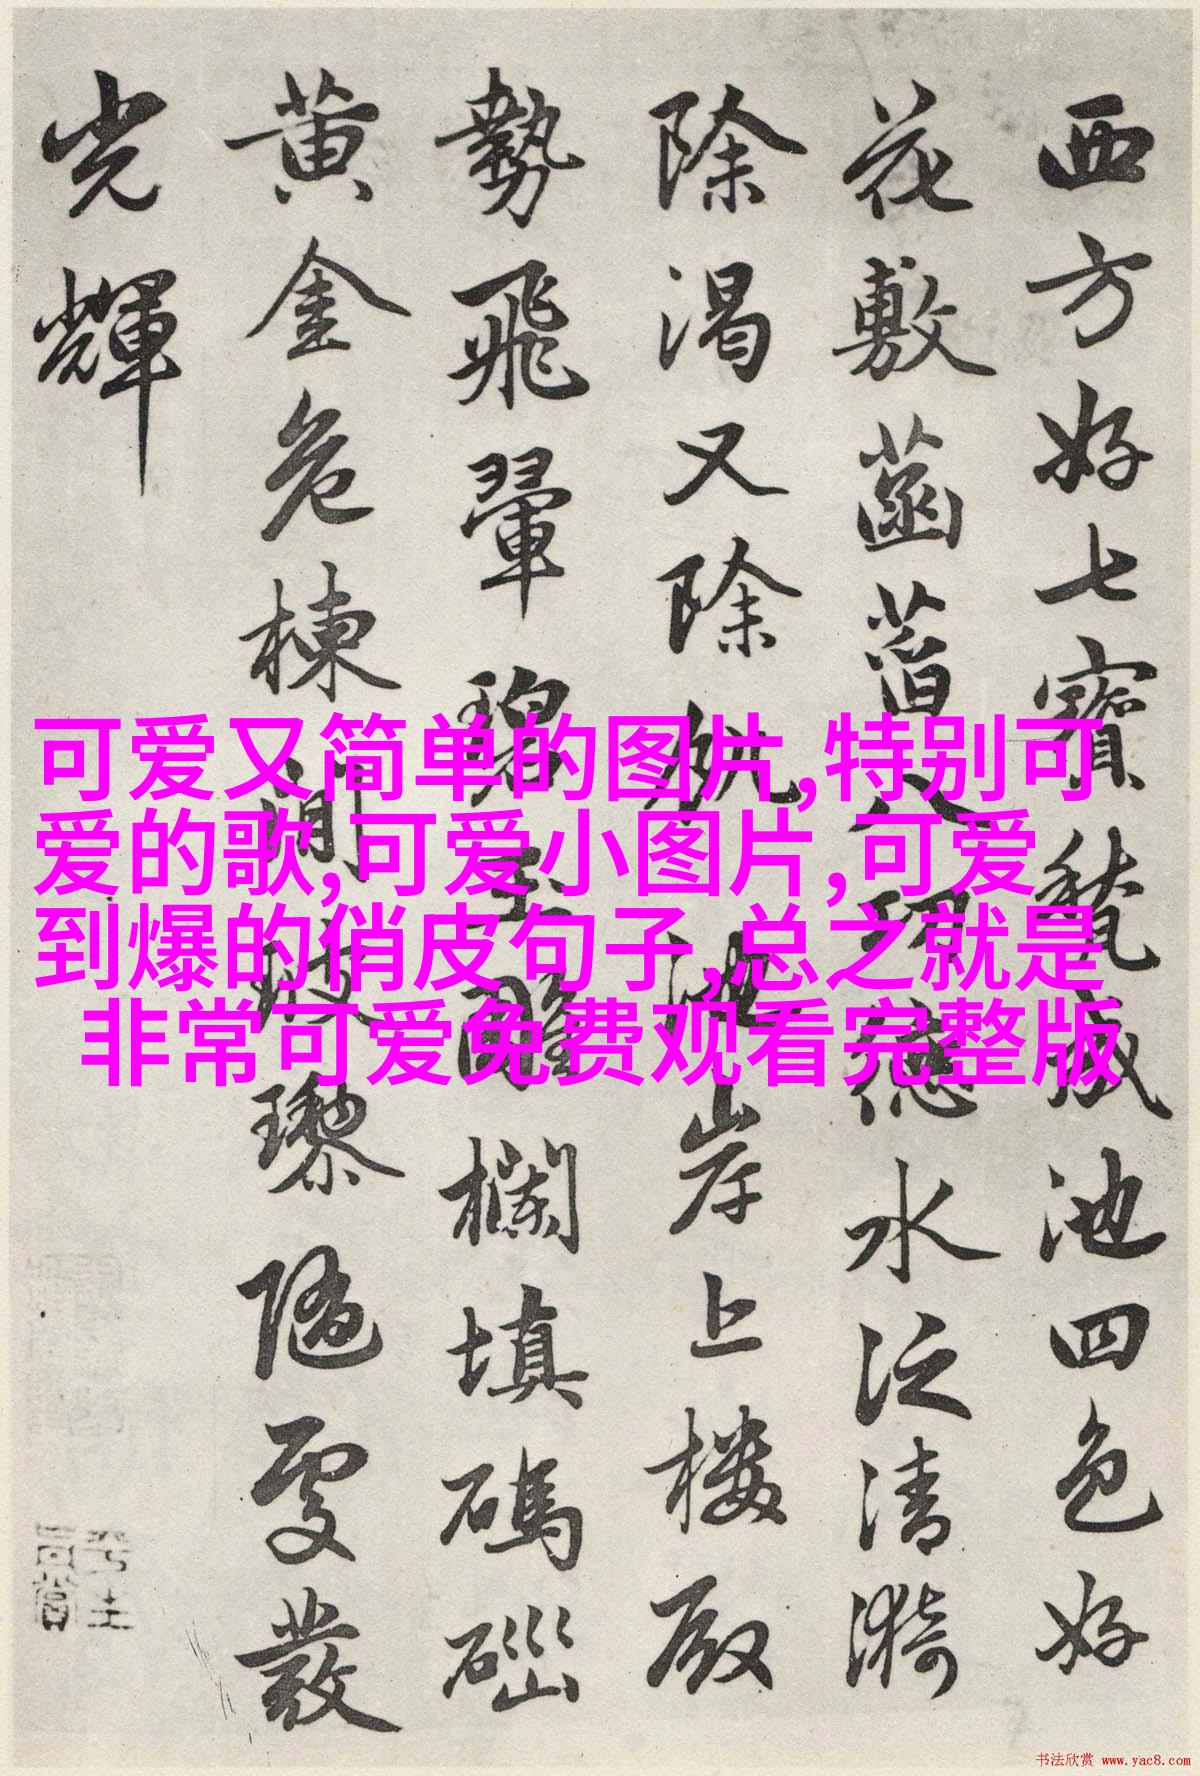 西方好七寶甃咸池四色好
花敷菡萏八功德水泛清漪
除渴又除飢池岸上樓殿
勢飛翬碧玉雕欄填碼碯
黄金危棟間玻瓈隨處發
光輝
可爱又简单的图片,特别可
爱的歌,可爱小图片,可爱
到爆的俏皮句子,总之就是
非常可爱免费观看完整版
书法欣赏 www.yac8.com